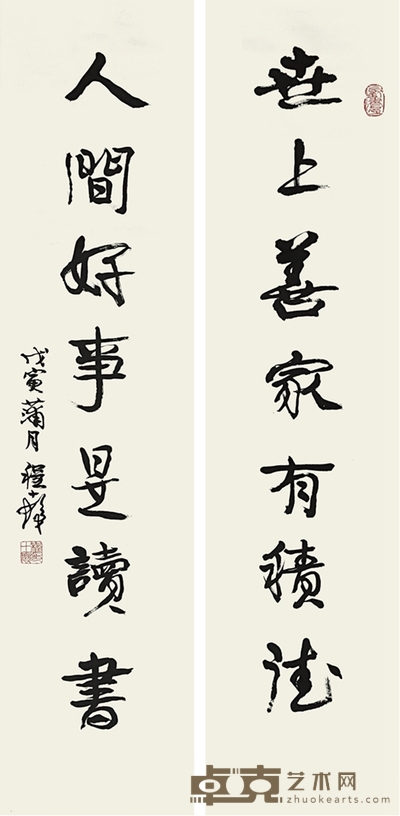 世上善家有積德
人間好事是讀書
戊寅蒲月 程十髮
卓克艺术网
zhuokearts.com